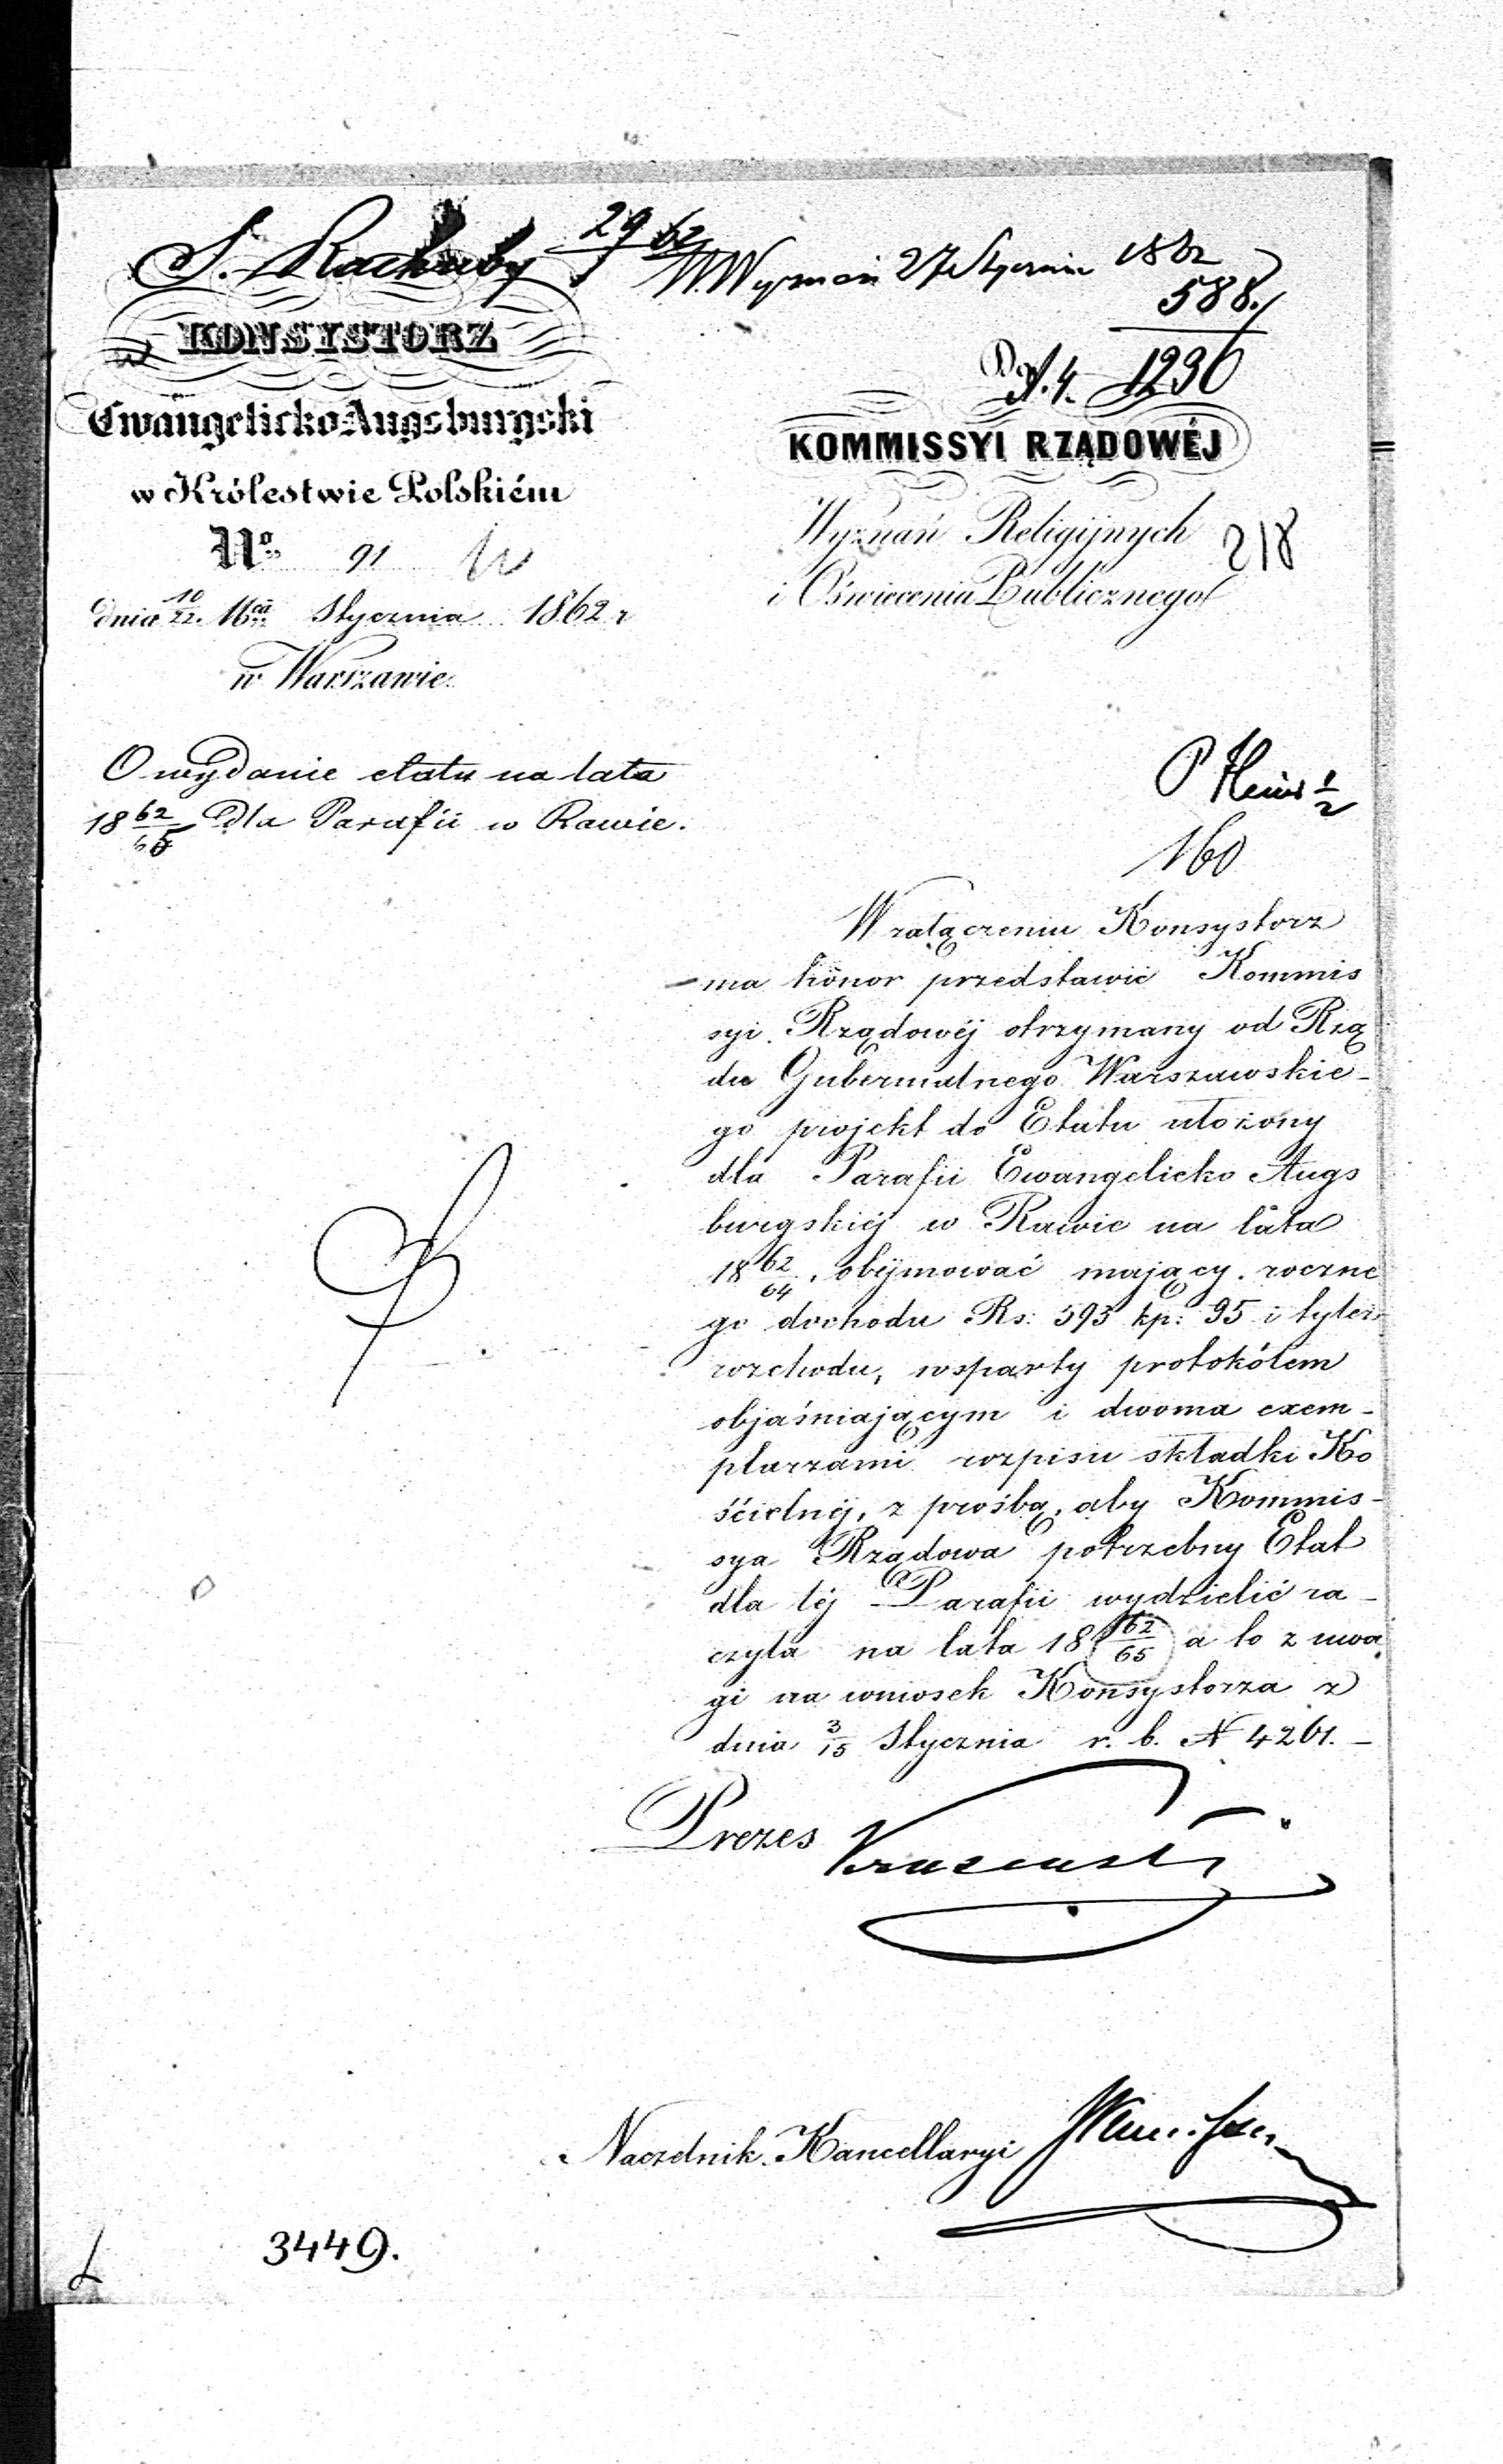 S. Rachuby 29/1 62
W. Wyznań 27 Stycznia 1862
588.
1236
KONSYSTORZ
Ewangelicko Augsburgski
w Królestwie Polskiém
No 91
dnia 10/22 Mca Stycznia 1862 r
w Warszawie.
KOMMISSYI RZĄDOWÉJ
Wyznań Religijnych
i Oświecenia Publicznego
218
O wydanie etatu na lata
18 62/65 dla Parafii w Rawie.
160
W załączeniu Konsystorz
ma honor przedstawić Kommis
syi Rządowéj otrzymany od Rzą
du Gubernialnego Warszawskie-
go projekt do Etatu ułożony
dla Parafii Ewangelicko Augs
burgskiéj w Rawie na lata
18 62/64, obejmować mający roczne
go dochodu Rs: 593 kp: 95 i tyleż
rozchodu, wsparty protokółem
objaśniającym i dwoma exem-
plarzami rozpisu składki Ko
ścielnéj, z prośbą, aby Kommis-
sya Rządowa potrzebny Etat
dla téj Parafii wydzielić ra-
czyła na lata 18 62/65 a to z uwa
gi na wniosek Konsystorza z
dnia 3/15 Stycznia r. b. N 4261.-
Prezes
Naczelnik Kancellaryi
3449.